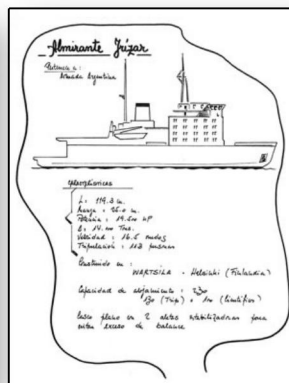 Almirante Yízar
Pertenece a:
Armada Argentina
Características
L: 119.3 m.
Manga: 25.0 m.
Potencia: 19.500 HP
Δ: 14.000 Tns.
Velocidad: 16.5 nudos
Tripulación: 113 personas
Construido en:
WARTSILA - Helsinki (Finlandia)
Capacidad de alojamiento: 230
130 (Trip) + 100 (Científica)
Casco plano con 2 aletas estabilizadoras para
evitar exceso de balance